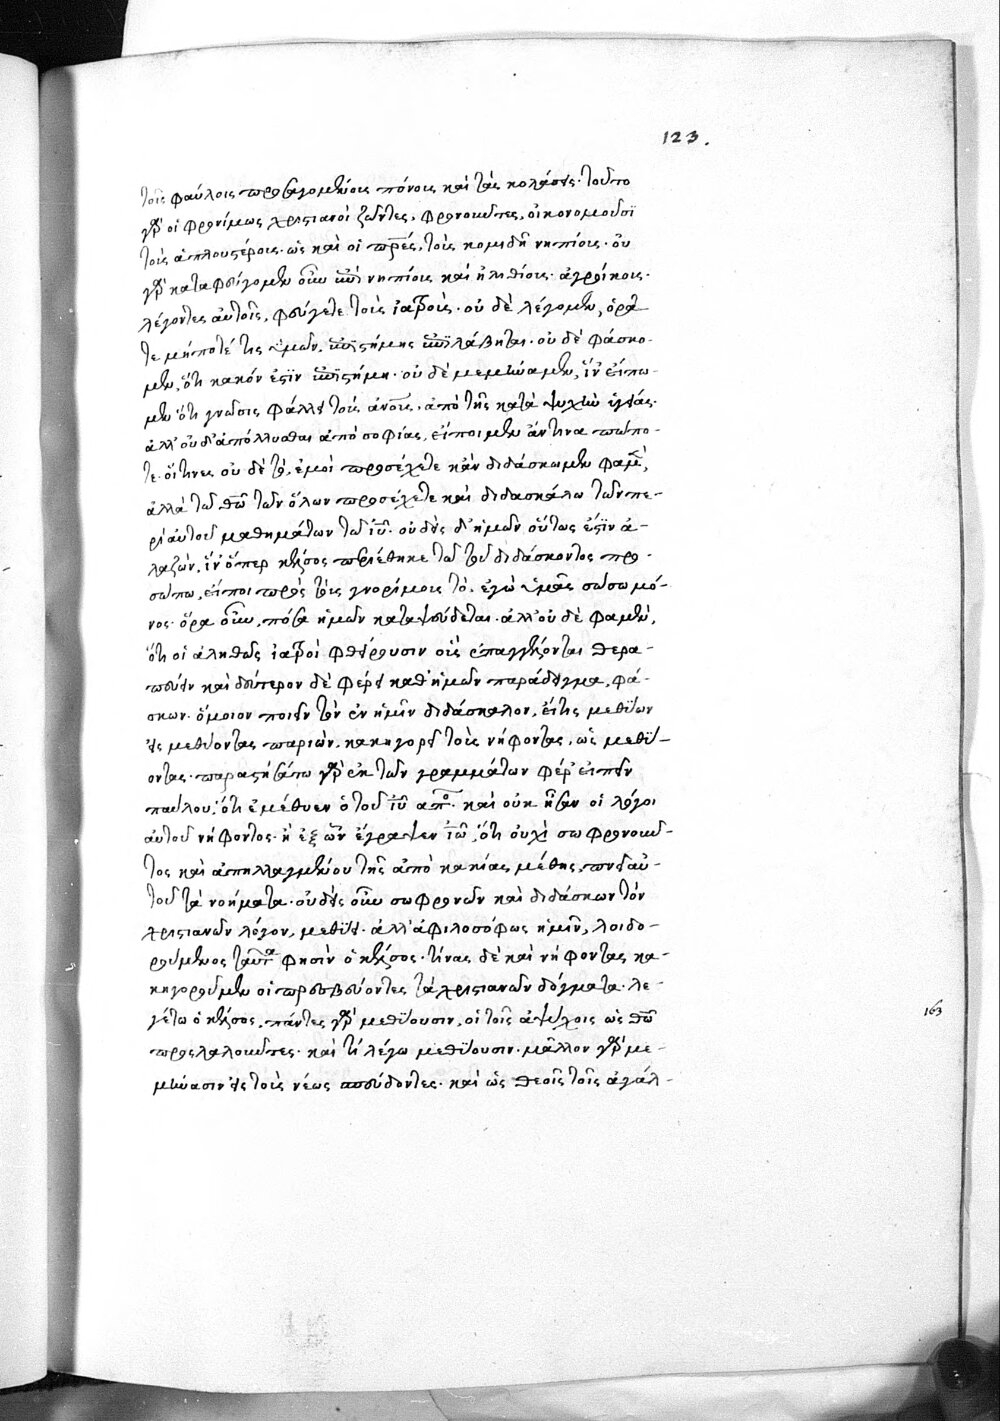 123.
τοῖς φαύλοις προσαγομένοις πόνοις καὶ τὰς κολάσεις· τοῦτο
γὰρ οἱ φρονίμως χριστιανοὶ ζῶντες, φρονοῦντες, οἰκονομοῦσι
τοὺς ἁπλουστέρους· ὡς καὶ οἱ πρές, τοὺς κομιδῇ νηπίους· οὐ
γὰρ καταφεύγομεν οὖν ἐπὶ νηπίους καὶ ἠλιθίους ἀγροίκους·
λέγοντες αὐτοῖς, φεύγετε τοὺς ἰατροὺς· οὐδὲ λέγομεν, ὁρᾶ
τε μήποτέ τις ὑμῶν, ἐπιστήμης ἐπιλάβηται· οὐδὲ φάσκο-
μεν, ὅτι κακόν ἐστιν ἐπιστήμη· οὐδὲ μεμήναμεν, ἵν εἴπω-
μεν ὅτι γνῶσις σφάλλει τοὺς ἀνους, ἀπὸ τῆς κατὰ ψυχὴν ὑγείας·
ἀλλ' οὐδ' ἀπόλλυσθαι ἀπὸ σοφίας, εἴποιμεν ἄν τινα πώπο-
τε· οἵτινες οὐδὲ τό, ἐμοὶ προσέχετε κἂν διδάσκωμεν φαμὲν,
ἀλλὰ τῷ θῶ τῶν ὅλων προσέχετε καὶ διδασκάλω τῶν πε-
ρὶ αὐτοῦ μαθημάτων τῷ ιῦ· οὐδεὶς δ' ἡμῶν οὕτως ἐστὶν ἀ-
λαζών, ἵν ὅπερ κέλσος περιέθηκε τῷ τοῦ διδάσκοντος προ-
σώπω, εἴποι πρὸς τοὺς γνωρίμους τό, ἐγὼ ὑμᾶς σώσω μό-
νος· ὅρα οὖν, πόσα ἡμῶν καταψεύδεται· ἀλλ' οὐδὲ φαμὲν,
ὅτι οἱ ἀληθῶς ἰατροὶ φθείρουσιν οὓς ἐπαγγέλλονται θερα-
πεύειν καὶ δεύτερον δὲ φέρει καθ' ἡμῶν παράδειγμα, φά-
σκων· ὅμοιον ποιεῖν τὸν ἐν ἡμῖν διδάσκαλον, εἴ τις μεθύων
εἰς μεθύοντας παριών, κακηγορεῖ τοὺς νήφοντας, ὡς μεθύ-
οντας· παραστησάτω γὰρ ἐκ τῶν γραμμάτων φέρ' εἰπεῖν
παύλου, ὅτι ἐμέθυεν ὁ τοῦ ιῦ απο· καὶ οὐκ ἦσαν οἱ λόγοι
αὐτοῦ νήφοντος· ἢ ἐξ ὧν ἔγραψεν ιω, ὅτι οὐχὶ σωφρονοῦν-
τος καὶ ἀπηλλαγμένου τῆς ἀπὸ κακίας μέθης, πνεῖ αὐ-
τοῦ τὰ νοήματα· οὐδεὶς οὖν σωφρονῶν καὶ διδάσκων τὸν
χριστιανῶν λόγον, μεθύει· ἀλλ' ἀφιλοσόφως ἡμῖν, λοιδο-
ρούμενος ταῦτα φησὶν ὁ κέλσος· τίνας δὲ καὶ νήφοντας κα-
κηγοροῦμεν οἱ πρεσβεύοντες τὰ χριστιανῶν δόγματα· λε-
γέτω ὁ κέλσος, πάντες γὰρ μεθύουσιν, οἱ τοῖς ἀψύχοις ὡς θῶ
προσλαλοῦντες· καὶ τί λέγω μεθύουσιν· μᾶλλον γὰρ με-
μήνασιν εἰς τοὺς νέως σπεύδοντες· καὶ ὡς θεοῖς τοῖς ἀγάλ-
163